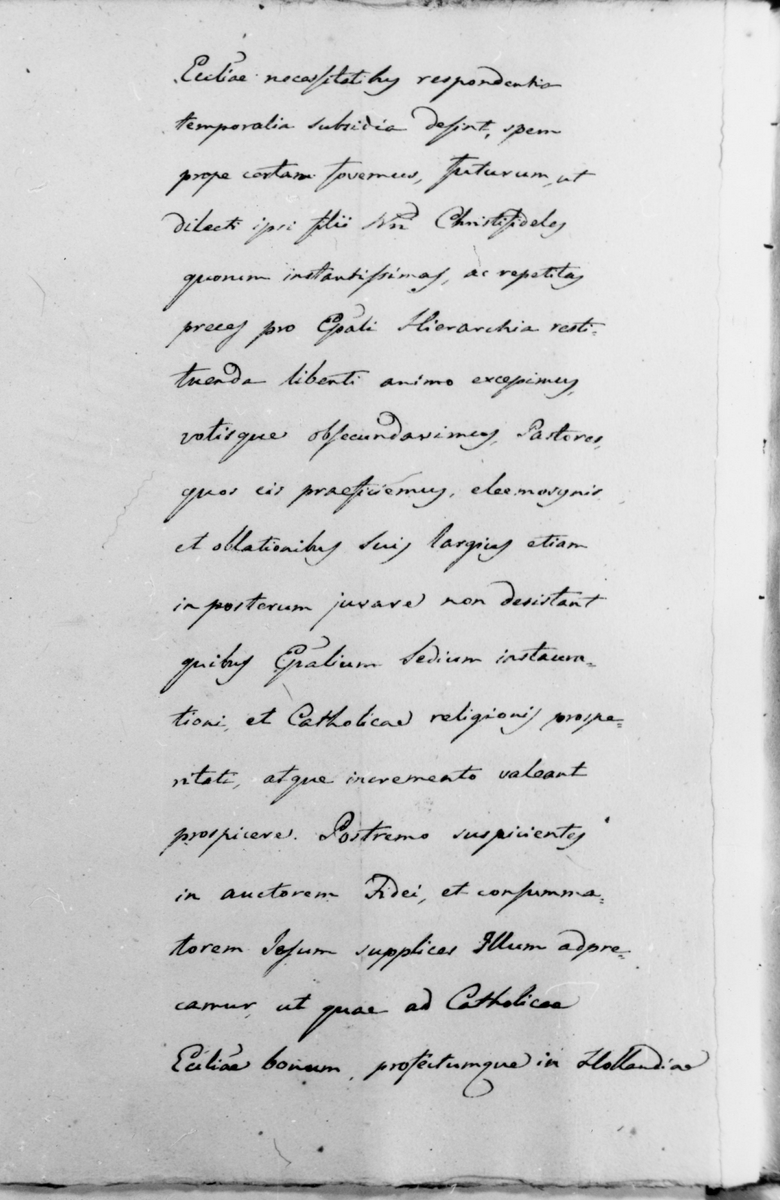 Eccliae necessitatibus respondentia
temporalia subsidia desint, spem
prope certam fovemus, futurum, ut
dilecti ipsi filii Nri Christifideles
quorum instantissimas, ac repetitas
preces pro Epali Hierarchia resti-
tuenda libenti animo excepimus,
votisque obsecundavimus, Pastores,
quos eis praeficiemus, eleemosynis
et oblationibus suis largius etiam
in posterum juvare non desistant
quibus Epalium Sedium instaura-
tioni, et Catholicae religionis prospe-
ritati, atque incremento valeant
prospicere. Postremo suspicientes
in auctorem Fidei, et consumma-
torem Jesum supplices Illum adpre-
camur, ut quae ad Catholicae
Eccliae bonum, profectumque in Hollandiae